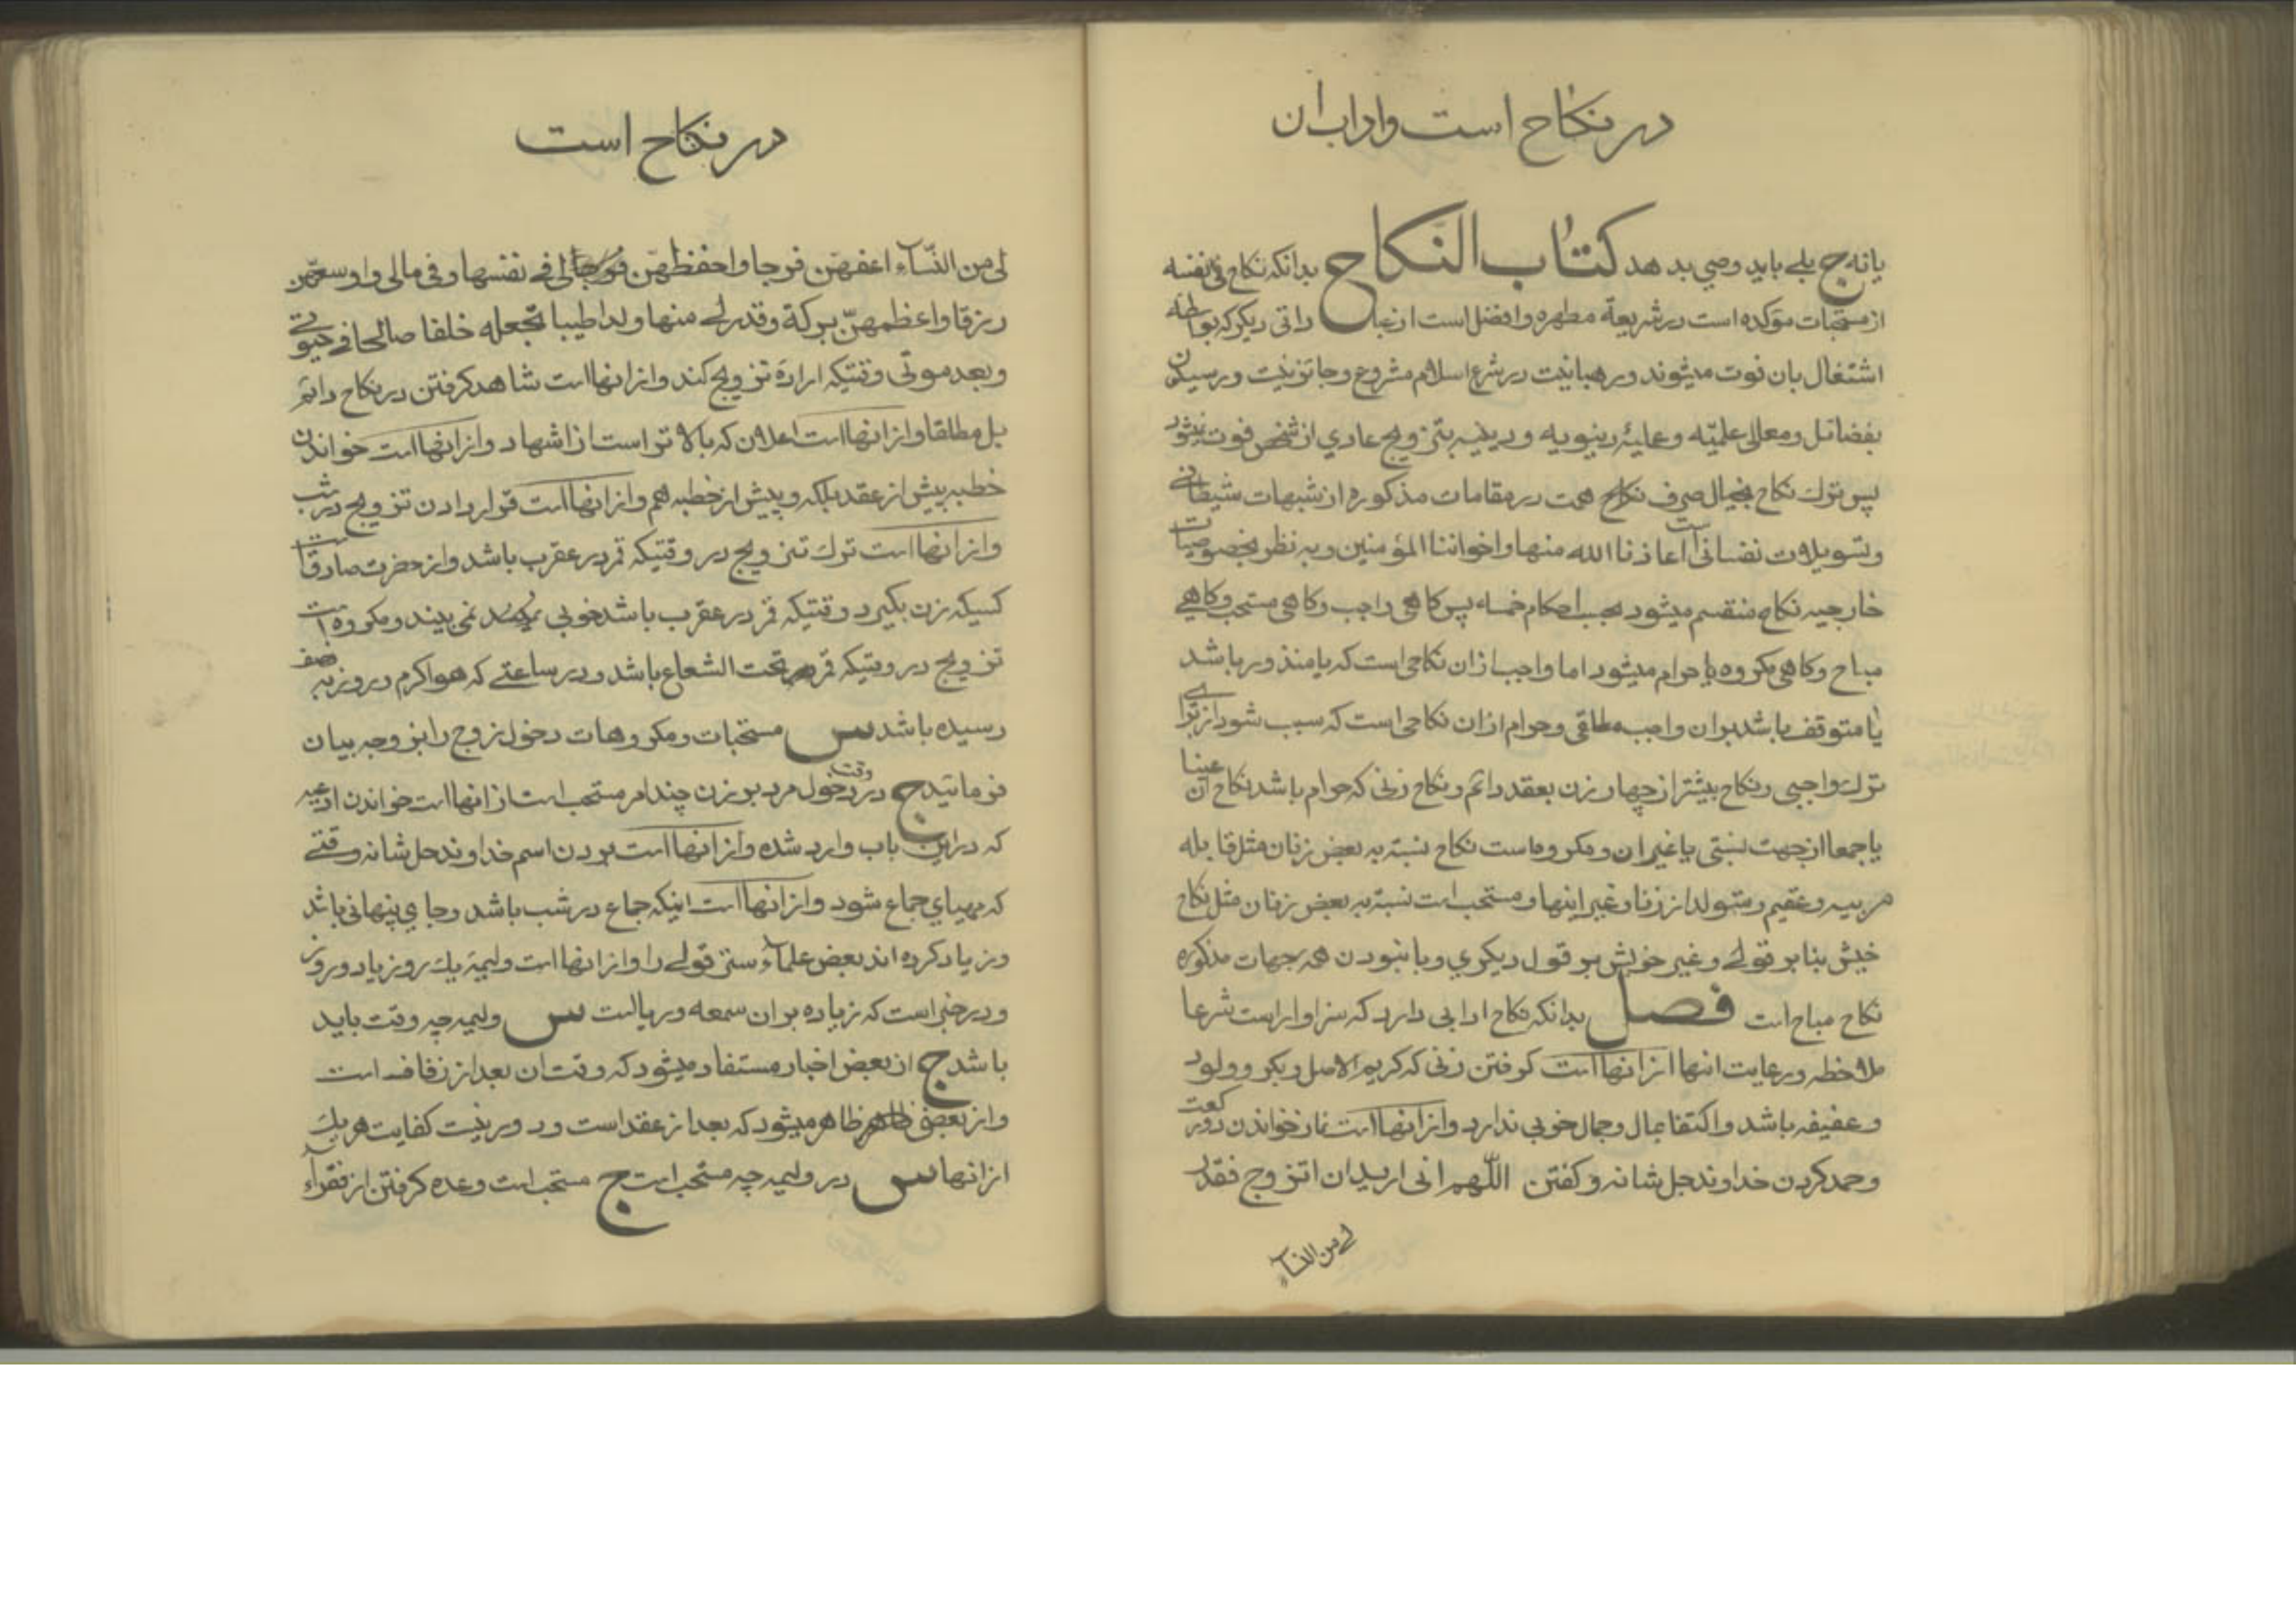 در نکاح است واداب ان
یا نه ج بلے باید وصی بدهد کتاب النکاح بدانکه نکاح فی نفسه
از مستحبات مؤکده است در شریعة مطهره وافضل است از عباداتی دیکر که بواسطه
اشتغال بان فوت میشوند ورهبانیت در شرع اسلام مشروع وجائز نیست ورسیدن
بفضائل ومعالی علمیّه وعلیۀ دینویه ودینیه بتزویج عادی از شخص فوت نمیشود
پس ترك نکاح بخیال صرف همت در مقامات مذکوره از شبهات شیطانی
وتسویلات نفسانی است اعاذنا الله منها واخواننا المؤمنین وبه نظر بخصوصیات
خارجیه نکاح منقسم میشود بحسب احکام خمسه پس کاهی واجب وکاهی مستحب وکاهے
مباح وکاهی مکروه یا حرام میشود اما واجب از ان نکاحی است که یا منذور باشد
یا متوقف باشد بران واجب مطلقی وحرام از ان نکاحی است که سبب شود از برای
ترك واجبی ونکاح بیشتر از چهار زن بعقد دائم ونکاح زنی که حرام باشد نکاح ان عینا
یا جمعا از جهت نسبتی یا غیر ان ومکروه است نکاح نسبة به بعض زنان مثل قابله
مربیه وعقیم ومتولد از زنا وغیر اینها ومستحب است نسبة به بعض زنان مثل نکاح
خیش بنابر قولے وغیر خویش بر قول دیکری وبا نبودن همه جهات مذکوره
نکاح مباح است فصل بدانکه نکاح ادابی دارد که سزاوار است شرعا
ملاحظه ورعایت انها از انها است کرفتن زنی که کریم الاصل وبکر وولود
وعفیفه باشد واکتفا بمال وجمال خوبی ندارد واز انها است نماز خواندن دو رکعت
وحمد کردن خداوند جل شانه وکفتن اللّهم انی ارید ان اتزوج فقدر
لے من النساء
در نکاح است
لی من النّساء اعفهنّ فرجا واحفظهنّ لی فے نفسها وفی مالی واوسعهنّ
رزقا واعظمهنّ برکة وقدر لے منها ولدا طیبا تجعله خلفا صالحا فے حیوتے
وبعد موتی وقتیکه ارادۀ تزویج کند واز انها است شاهد کرفتن در نکاح دائم
بل مطلقا واز انها است اعلان که بالاتر است از اشهاد واز انها است خواندن
خطبه پیش از عقد بلکه وپیش از خطبه هم واز انها است قرار دادن تزویج در شب
واز انها است ترك تزویج در وقتیکه قمر در عقرب باشد واز حضرت صادق است
کسیکه زن بکیرد وقتیکه قمر در عقرب باشد خوبی نمی بیند ومکروه است
تزویج در وقتیکه قمر تحت الشعاع باشد ودر ساعتے که هوا کرم ودر روز به نصف
رسیده باشد س مستحبات ومکروهات دخول زوج را بزوجه بیان
فرمائید ج در وقت دخول مرد بر زن چند امر مستحب است از انها است خواندن ادعیه
که در این باب وارد شده واز انها است بردن اسم خداوند جل شانه وقتے
که مهیای جماع شود واز انها است اینکه جماع در شب باشد وجای پنهانی باشد
وزیاد کرده اند بعض علماء ستر قولے را واز انها است ولیمة یك روز یا دو روز
ودر خبر است که زیاده بر ان سمعه وریا است س ولیمه چه وقت باید
باشد ج از بعض اخبار مستفاد میشود که وقت ان بعد از زفاف است
واز بعض ظاهر میشود که بعد از عقد است ودور نیست کفایت هر یك
از انها س در ولیمه چه مستحب است ج مستحب است وعده کرفتن از فقراء